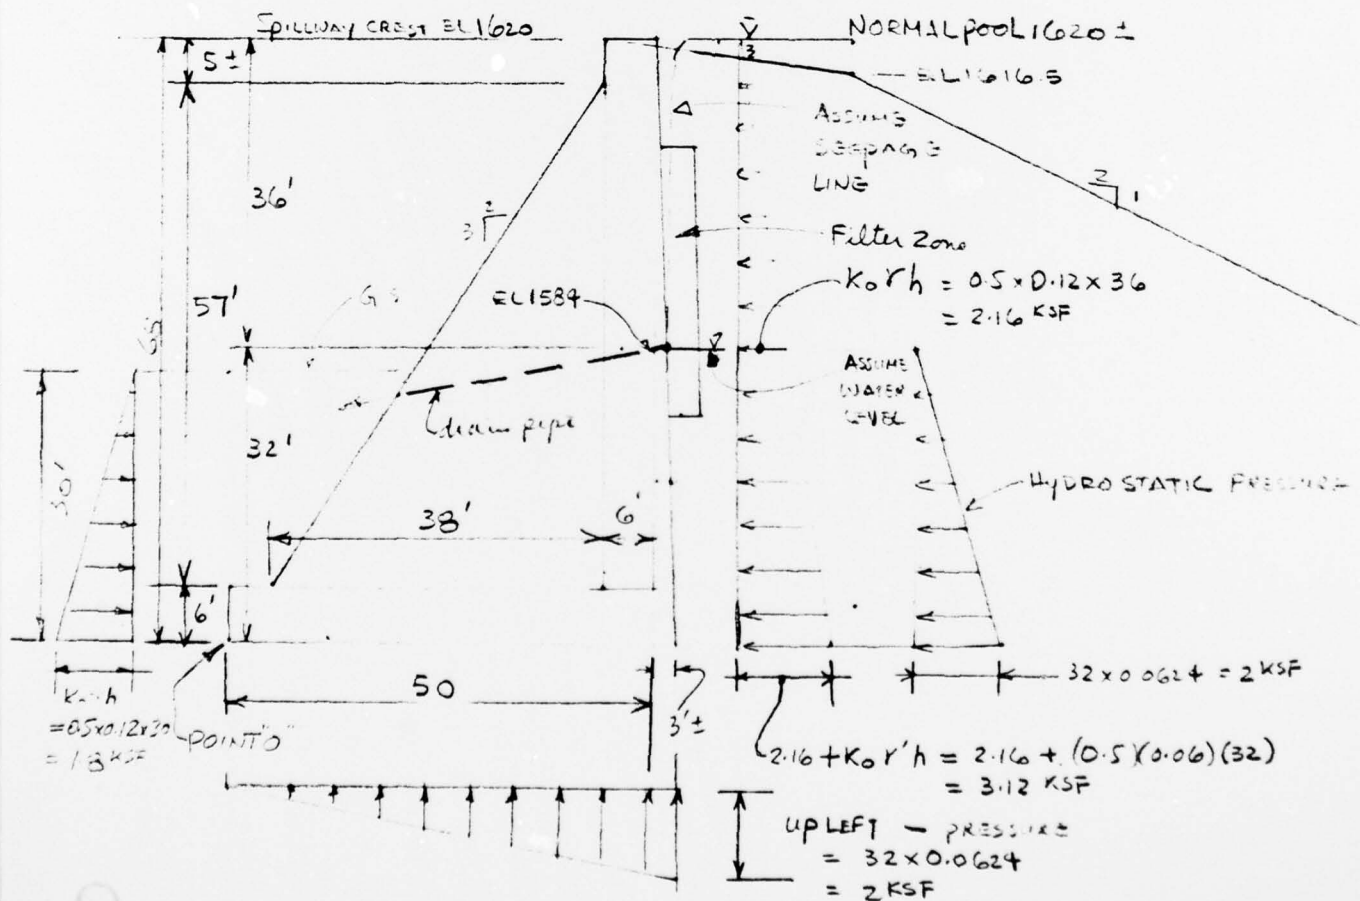 SPILLWAY CREST EL 1620
NORMAL POOL 1620 ±
5 ±
3
EL 1616.5
ASSUME
SEEPAGE
LINE
2
1
36'
2
3
Filter Zone
K₀ r h = 0.5 × 0.12 × 36
= 2.16 KSF
57'
G S
EL 1584
ASSUME
WATER
LEVEL
drain pipe
30'
32'
HYDROSTATIC PRESSURE
38'
6'
6'
50
3' ±
32 × 0.0624 = 2 KSF
= 0.5 × 0.12 × 30
= 1.8 KSF
POINT "O"
2.16 + K₀ r' h = 2.16 + (0.5)(0.06)(32)
= 3.12 KSF
UPLEFT - PRESSURE
= 32 × 0.0624
= 2 KSF